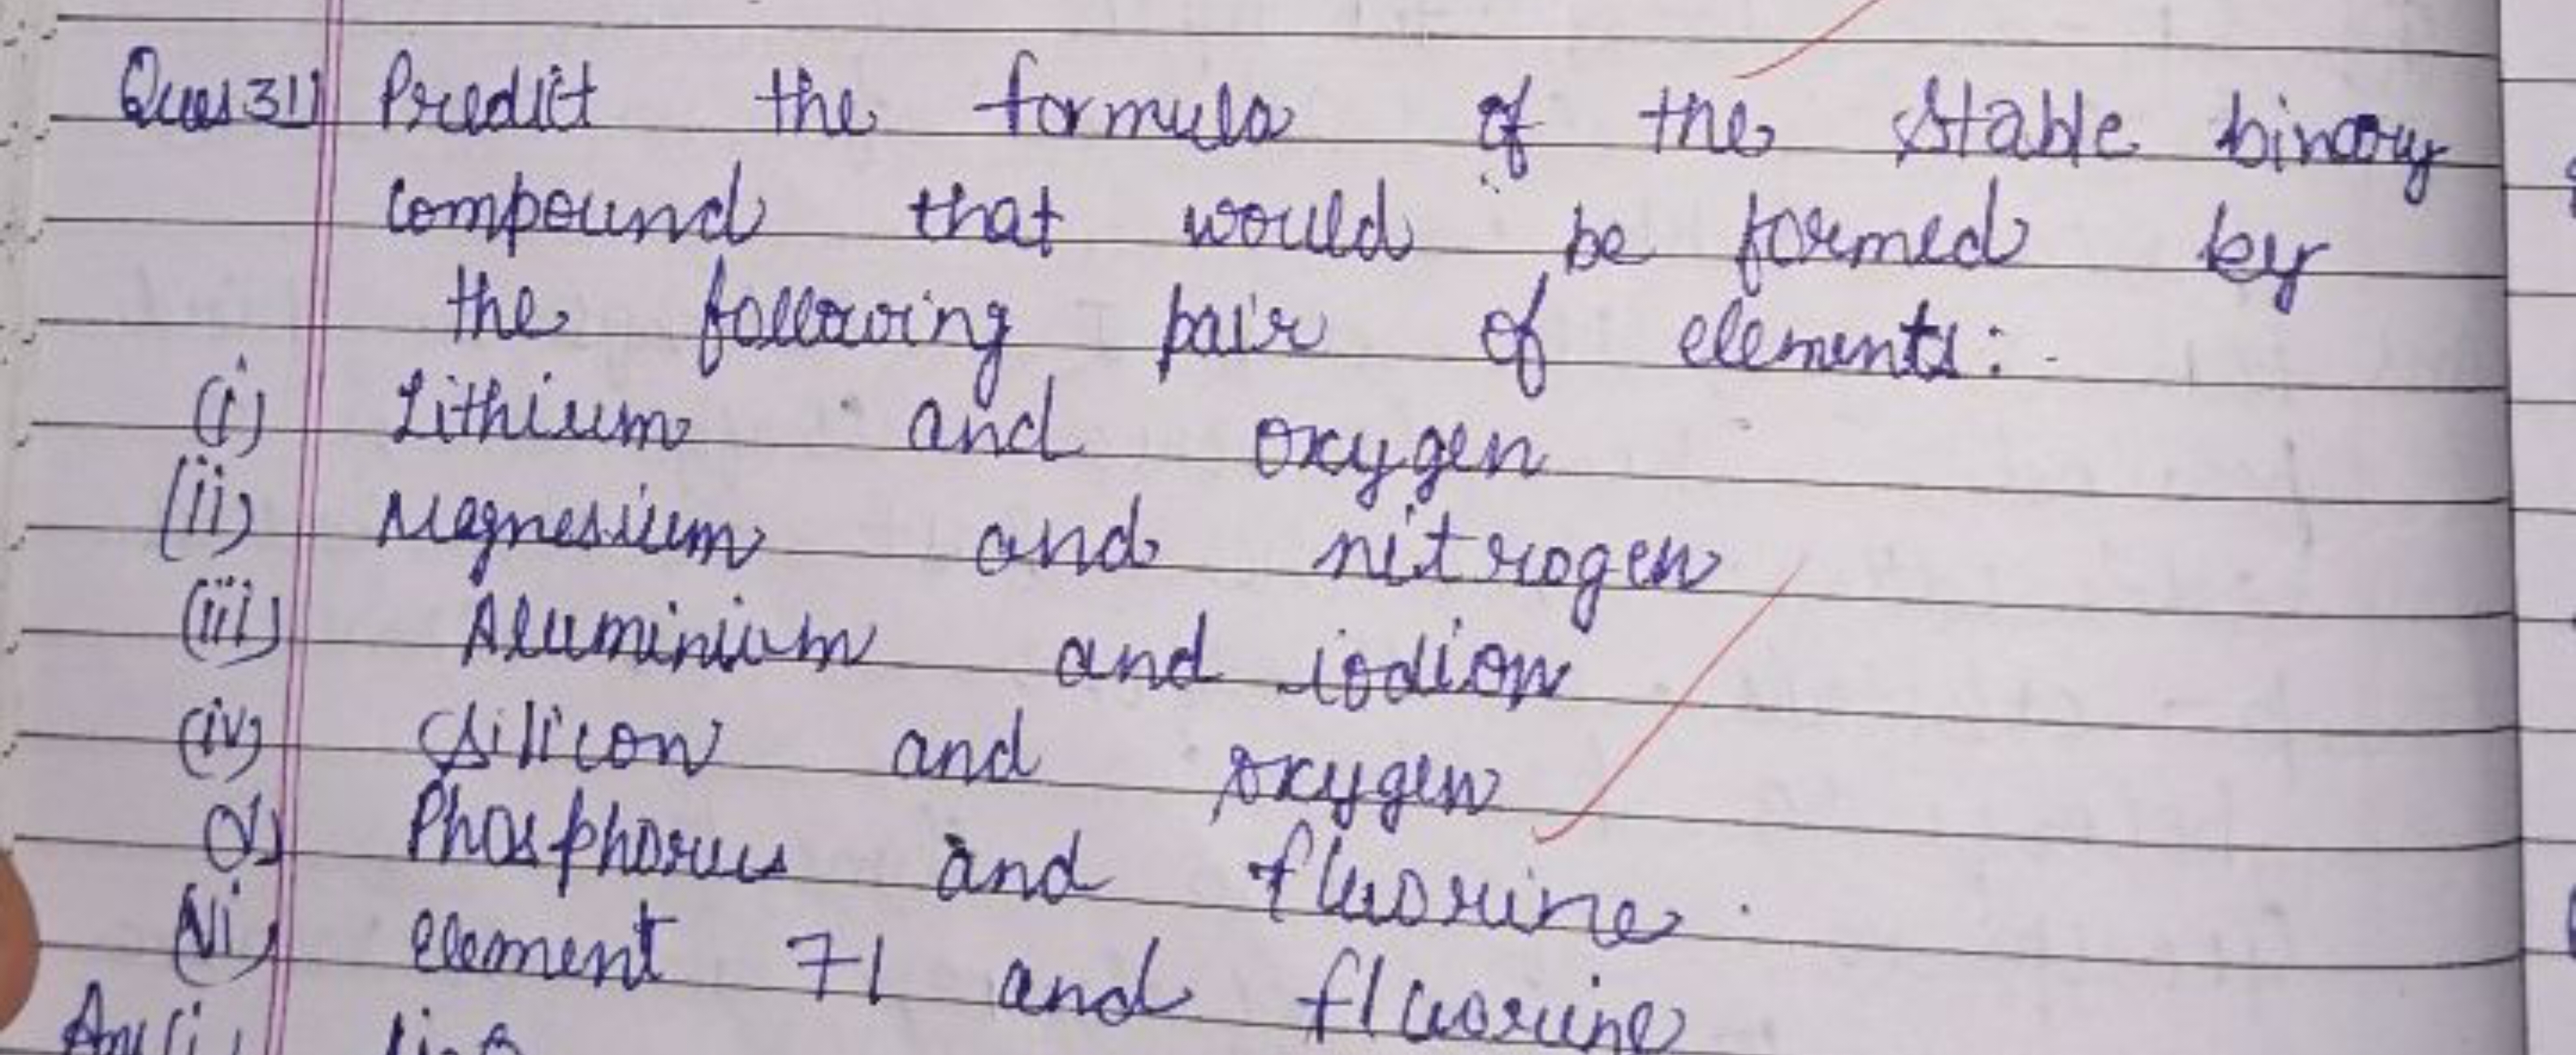 Ques 31) Predict the formula of the stable binary
compound that would be formed by
the following pair of elements:-
(i) Lithium and oxygen
(ii) Magnesium and nitrogen
(iii) Aluminium and iodion
(iv) Silicon and oxygen
(v) Phosphorus and fluorine.
(vi) element 71 and fluorine
Ans (i)